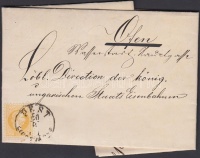 Ofen
Wasserstadt Hauptgasse
Löbl. Direction der königl.
ungarischen Staats Eisenbahnen
PEST